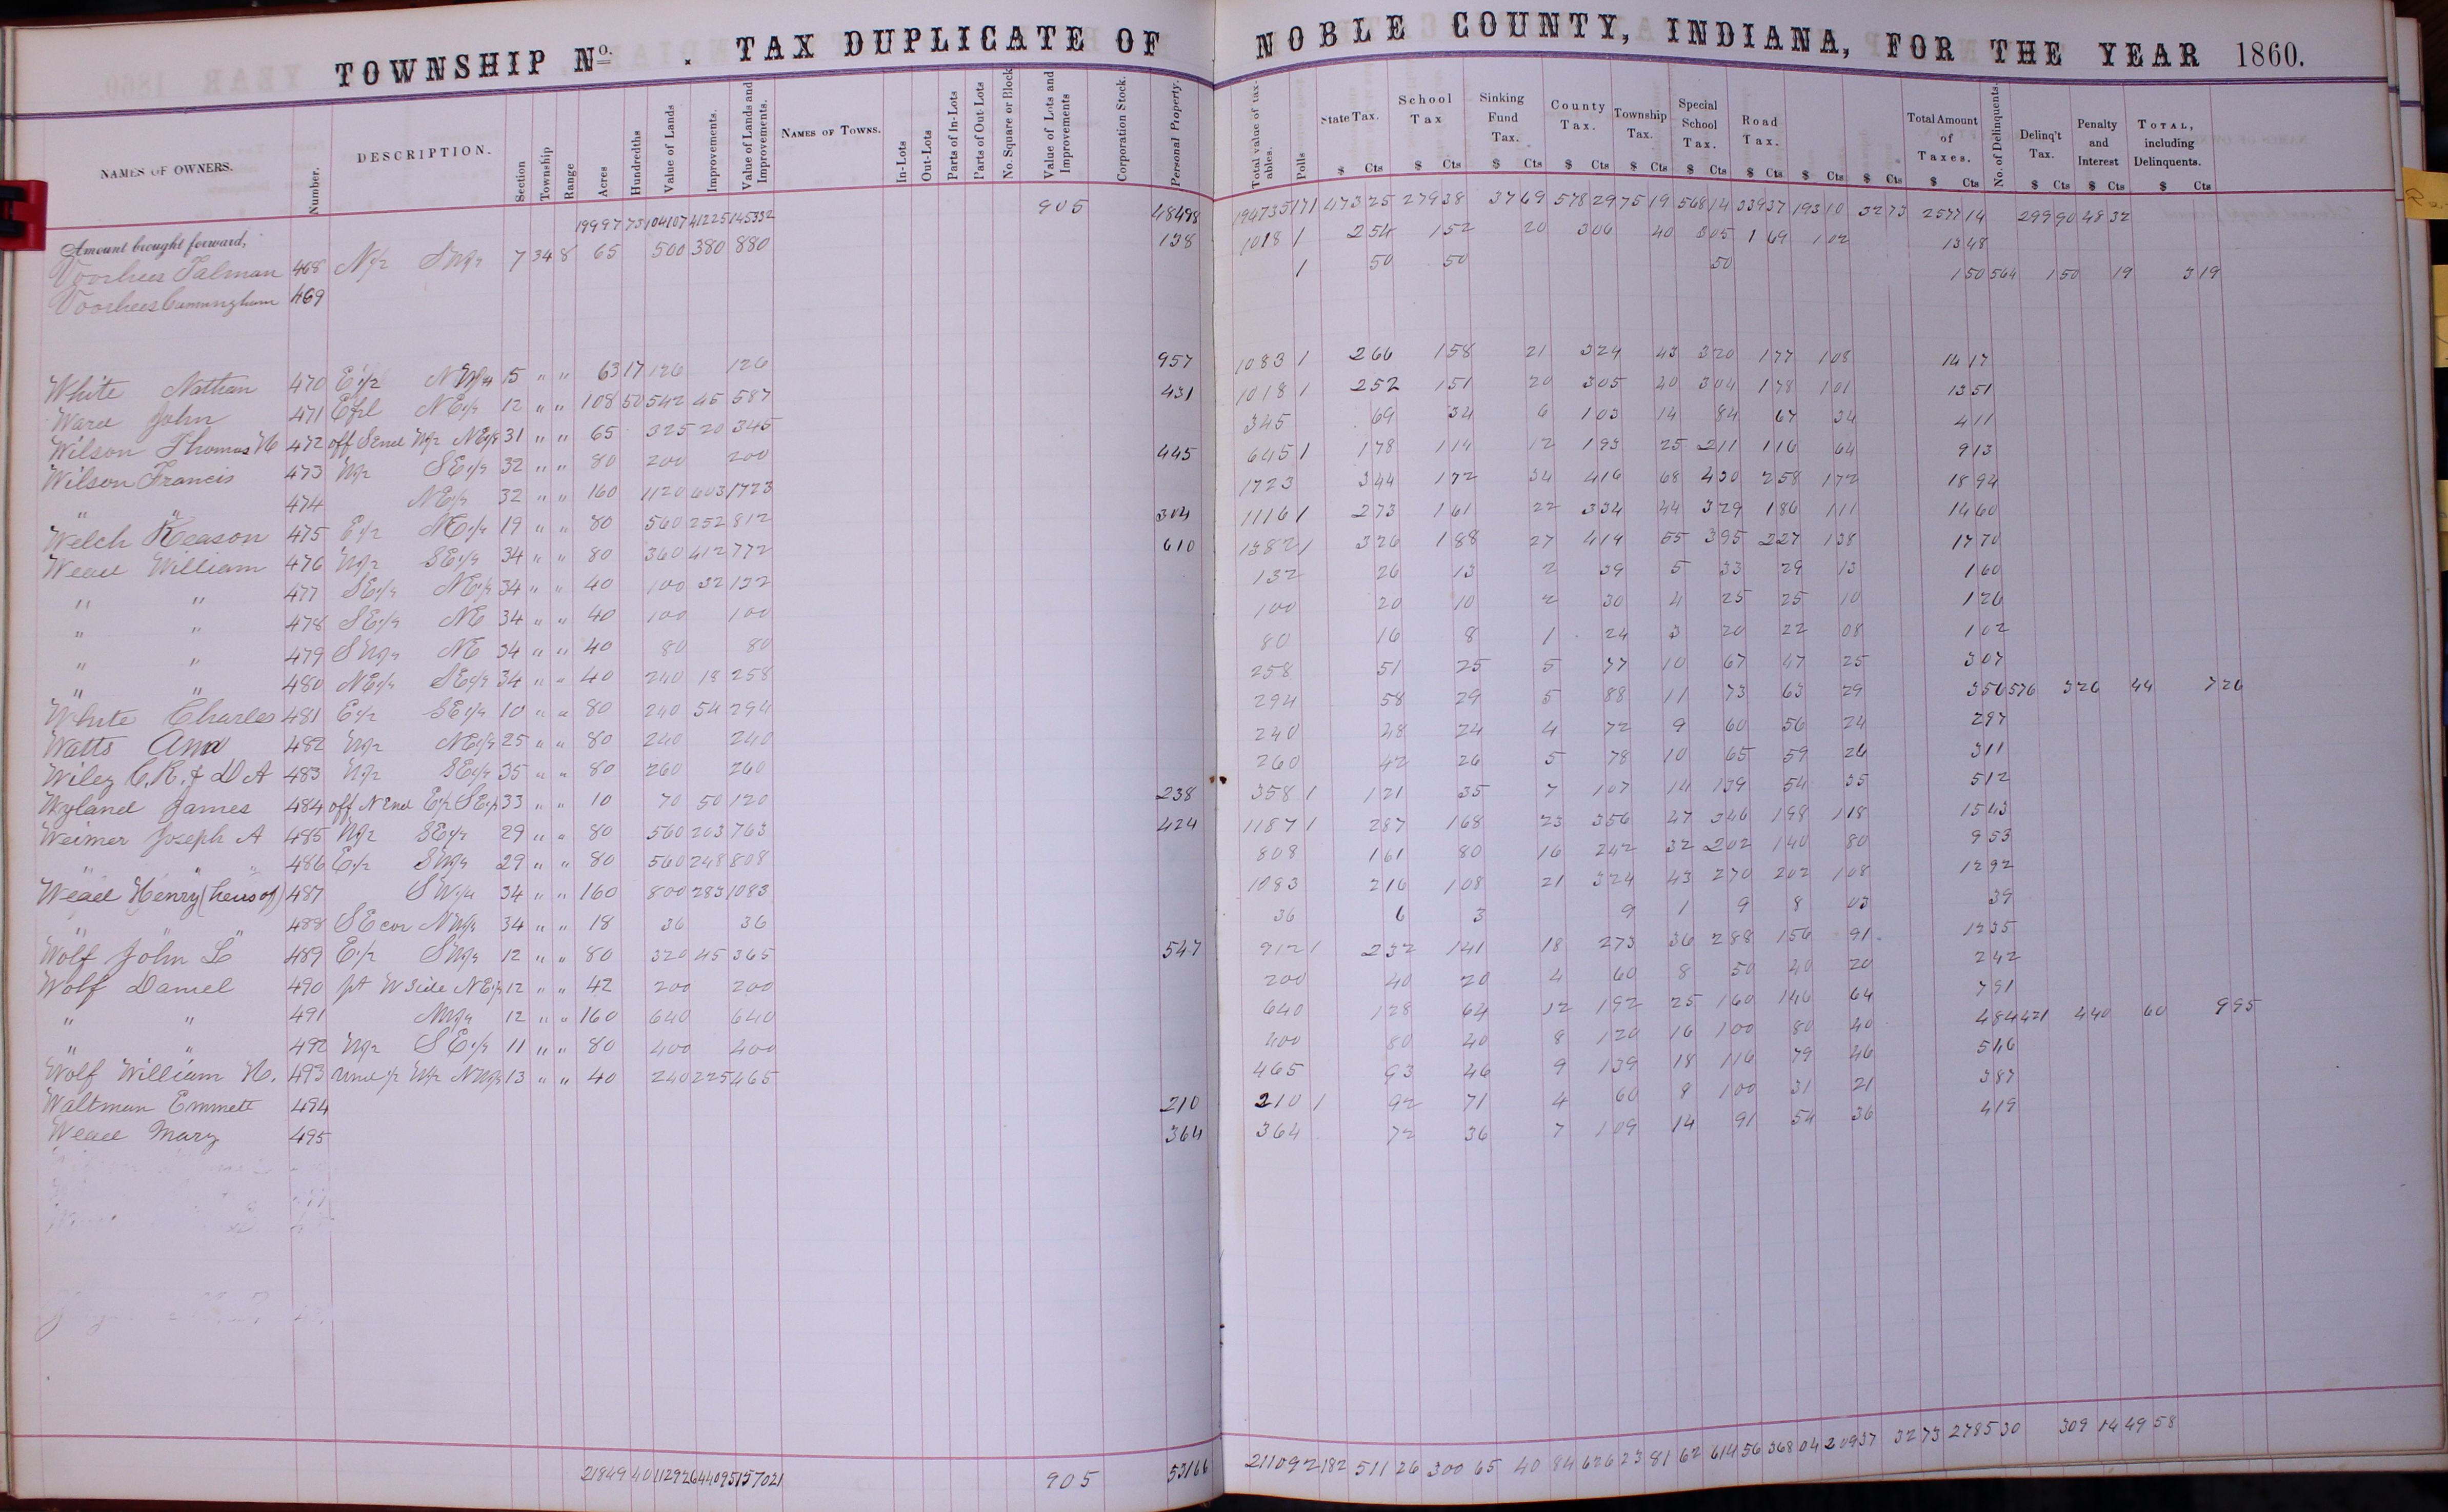 TOWNSHIP No. . TAX DUPLICATE OF NOBLE COUNTY, INDIANA, FOR THE YEAR 1860.
NAMES OF OWNERS. Number. DESCRIPTION. Section Township Range Acres Hundredths Value of Lands Improvements. Value of Lands and Improvements. NAMES OF TOWNS. In-Lots Out-Lots Parts of In-Lots Parts of Out Lots No. Square or Block Value of Lots and Improvements Corporation Stock. Personal Property. Total value of taxables. Polls State Tax. School Tax Sinking Fund Tax. County Tax. Township Tax. Special School Tax. Road Tax. Total Amount of Taxes. No. of Delinquents. Delinq't Tax. Penalty and Interest TOTAL, including Delinquents.
$ Cts $ Cts $ Cts $ Cts $ Cts $ Cts $ Cts $ Cts $ Cts $ Cts $ Cts $ Cts $ Cts
Amount brought forward, 19997 73 104107 41225 145332 905 48498 194735 171 473 25 279 38 37 69 578 29 75 19 568 14 339 37 193 10 32 73 2577 14 299 90 48 32
Voorhees Talman 468 N 1/2 SW 1/4 7 34 8 65 500 380 880 138 1018 1 2 54 1 52 20 3 06 40 3 05 1 69 1 02 13 48
Voorhees Cunningham 469 1 50 50 50 1 50 564 1 50 19 3 19
White Nathan 470 E 1/2 NW 1/4 15 " " 63 17 126 126 957 1083 1 2 66 1 58 21 3 24 43 3 20 1 77 1 08 14 17
Ward John 471 NE 1/4 12 " " 108 50 542 45 587 431 1018 1 2 52 1 51 20 3 05 40 3 04 1 78 1 01 13 51
Wilson Thomas 472 off S end W 1/2 NE 1/4 31 " " 65 325 20 345 345 69 34 6 1 03 14 84 67 34 4 11
Wilson Francis 473 W 1/2 SE 1/4 32 " " 80 200 200 445 645 1 1 78 1 14 12 1 93 25 2 11 1 16 64 9 13
" " 474 NE 1/4 32 " " 160 1120 603 1723 1723 3 44 1 72 34 4 16 68 4 30 2 58 1 72 18 94
Welch Reason 475 E 1/2 NE 1/4 19 " " 80 560 252 812 304 1116 1 2 73 1 61 22 3 34 44 3 29 1 86 1 11 14 60
Weade William 476 W 1/2 SE 1/4 34 " " 80 360 412 772 610 1382 1 3 26 1 88 27 4 14 55 3 95 2 27 1 38 17 70
" " 477 SE 1/4 NE 1/4 34 " " 40 100 32 132 132 26 13 2 39 5 33 29 13 1 60
" " 478 SE 1/4 NE 34 " " 40 100 100 100 20 10 2 30 4 25 25 10 1 26
" " 479 SW 1/4 NE 34 " " 40 80 80 80 16 8 1 24 3 20 22 08 1 02
" " 480 NE 1/4 SE 1/4 34 " " 40 240 18 258 258 51 25 5 77 10 67 47 25 3 07
White Charles 481 E 1/2 SE 1/4 10 " " 80 240 54 294 294 58 29 5 88 11 73 63 29 3 56 576 3 26 44 7 26
Watts Ann 482 W 1/2 NE 1/4 25 " " 80 240 240 240 48 24 4 72 9 60 56 24 2 97
Wiley C.R. & D A 483 W 1/2 SE 1/4 35 " " 80 260 260 260 42 26 5 78 10 65 59 26 3 11
Wyland James 484 off N end E 1/2 SE 1/4 33 " " 10 70 50 120 238 358 1 1 21 35 7 1 07 14 1 39 54 35 5 12
Weimer Joseph A 485 W 1/2 SE 1/4 29 " " 80 560 203 763 424 1187 1 2 87 1 68 23 3 56 47 3 46 1 98 1 18 15 43
" " " 486 E 1/2 SW 1/4 29 " " 80 560 248 808 808 1 61 80 16 2 42 32 2 02 1 40 80 9 53
Weade Henry (heirs of) 487 SW 1/4 34 " " 160 800 283 1083 1083 2 16 1 08 21 3 24 43 2 70 2 02 1 08 12 92
" " " 488 SE cor NW 1/4 34 " " 18 36 36 36 6 3 9 1 9 8 03 39
Wolf John L 489 E 1/2 SW 1/4 12 " " 80 320 45 365 547 912 1 2 32 1 41 18 2 73 36 2 88 1 56 91 12 35
Wolf Daniel 490 pt W Side NE 1/4 12 " " 42 200 200 200 40 20 4 60 8 50 40 20 2 42
" " 491 NW 1/4 12 " " 160 640 640 640 1 28 64 12 1 92 25 1 60 1 46 64 7 91
" " 492 W 1/2 SE 1/4 11 " " 80 400 400 400 80 40 8 1 20 16 1 00 80 40 4 84 421 4 40 60 9 95
Wolf William H. 493 und 1/2 W 1/2 NW 1/4 13 " " 40 240 225 465 465 93 46 9 1 39 18 1 16 79 46 5 46
Waltman Emmett 494 210 210 1 92 71 4 60 8 1 00 31 21 3 87
Weade Mary 495 364 364 72 36 7 1 09 14 91 54 36 4 19
21849 40 112926 44095 157021 905 53166 211092 182 511 26 300 65 40 84 626 23 81 62 614 56 368 04 209 37 32 73 2785 30 309 14 49 58